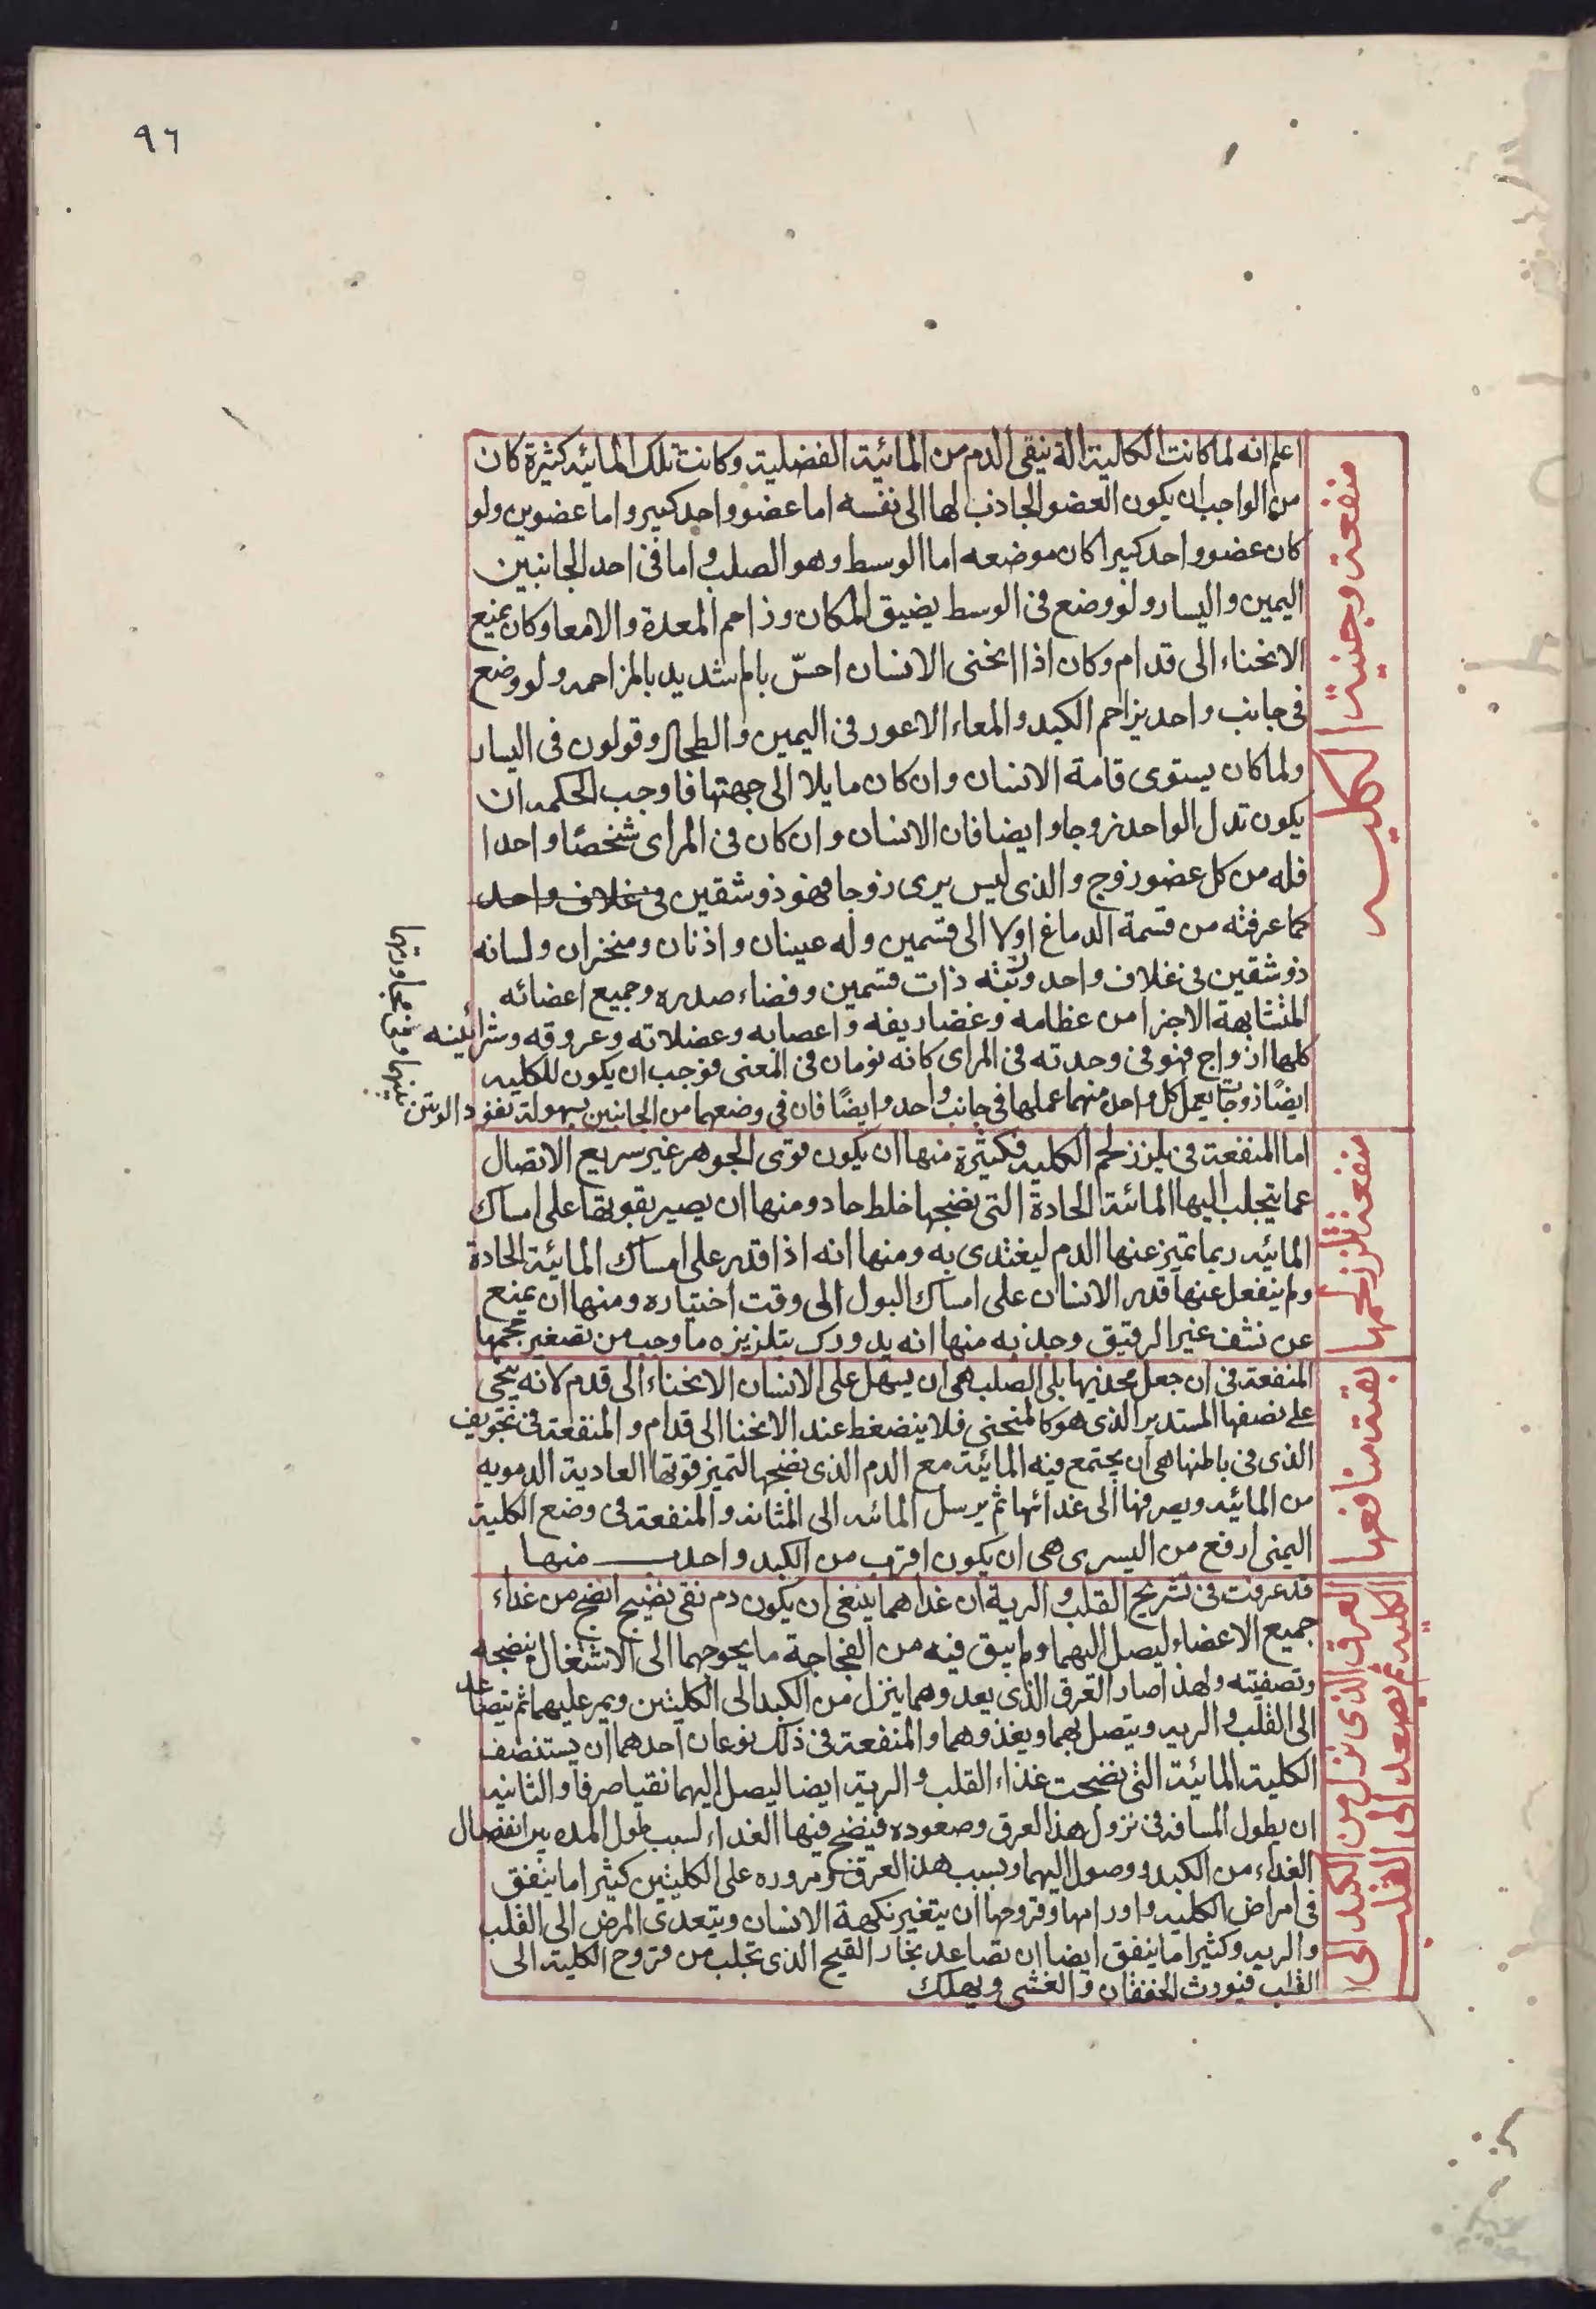 ٩٦
منفعة وجنية الكليه
اعلم انه لما كانت الكالية الة ينقى الدم من المائية الفضلية وكانت تلك المائيه كثيرة كان
من الواجب ان يكون العضو الجاذب لها الى نفسه اما عضو واحد كبير واما عضوين ولو
كان عضو واحد كبيرا كان موضعه اما الوسط وهو الصلب واما فى احد الجانبين
اليمين واليسار ولو وضع فى الوسط يضيق المكان وزاحم المعدة والامعا وكان يمنع
الانحناء الى قدام وكان اذا انحنى الانسان احسّ بالم شديد بالمزاحمه ولو وضع
فى جانب واحد يزاحم الكبد والمعاء الاعور فى اليمين والطحال وقولون فى اليسار
ولما كان يستوى قامة الانسان وان كان مايلا الى جهتها فاوجب الحكمه ان
يكون تدل الواحد زوجا وايضا فان الانسان وان كان فى المراى شخصًا واحدا
فله من كل عضو زوج والذى ليس يرى زوجا فهو ذو شقين فى غلاف واحد
كما عرفته من قسمة الدماغ اولا الى قسمين وله عينان واذنان ومنخران ولسانه
ذو شقين فى غلاف واحد ورئته ذات قسمين وفضاء صدره وجميع اعضائه
المتشابهة الاجزا من عظامه وغضاريفه واعصابه وعضلاته وعروقه وشرائينه
كلها ازواج فهو فى وحدته فى المراى كانه نومان فى المعنى فوجب ان يكون للكليه
ايضًا زوجًا يعمل كل واحد منهما عملها فى جانب واحد وايضًا فان فى وضعهما من الجانبين سهولة نفوذ الوتين
بينها وفى مجاورتها
منفعة تلزز لحمها
اما المنفعة فى تلزز لحم الكليه فكثيرة منها ان يكون قوى الجوهر غير سريع الاتصال
عما يتجلب اليها المائة الحادة التى يضنجها خلط حاد ومنها ان يصير بقوتها على امساك
المائيه ربما تميز عنها الدم ليغتدى به ومنها انه اذا قدر على امساك المائية الحادة
ولم ينفعل عنها قدر الانسان على امساك البول الى وقت اختياره ومنها ان يمنع
عن نشف غير الرقيق وجذبه منها انه يدورك بتلزيزه ما وجب من تصغير حجمها
بقية منافعها
المنفعة فى ان جعل محدبها يلى الصلب هى ان يسهل على الانسان الانحناء الى قدم لانه يجى
على نصفها المستدير الذى هو كالمنحنى فلا ينضغط عند الانحنا الى قدام والمنفعة فى تجويف
الذى فى باطنها هى ان يجتمع فيه المائية مع الدم الذى نضحها التميز قوتها العادية الدمويه
من المائيه ويصرفها الى غدائها ثم يرسل المائه الى المثانه والمنفعة فى وضع الكلية
اليمنى ارفع من اليسرى هى ان يكون اقرب من الكبد واحدب منها
العرق الذى نزل من الكبد الى
الكليه ثم يصعد الى القلب
قد عرفت فى تشريح القلب والرية ان غداهما ينبغى ان يكون دم نقى نضيج انضج من غداء
جميع الاعضاء ليصل اليهما ولم يبق فيه من الفجاجة ما يحوجهما الى الاشتغال بنضجه
وتصفيته ولهذا صار العرق الذى يعدوهما ينزل من الكبد الى الكليتين ويمر عليهما ثم يتصاعد
الى القلب والريه ويتصل بهما ويغذوهما والمنفعة فى ذلك نوعان احدهما ان يستنصف
الكلية المائية التى نضحت غذاء القلب والرية ايضا ليصل اليهما نقيا صرفا والثانيه
ان يطول المسافه فى نزول هذا العرق وصعوده فينضج فيها الغداء لسبب طول المده بين انفصال
الغداء من الكبد ووصول اليهما وبسبب هذا العرق ومروره على الكليتين كثيرا ما يتفق
فى امراض الكليه واورامها وقروحها ان يتغير نكهة الانسان ويتعدى المرض الى القلب
والريه وكثيرا ما يتفق ايضا ان تصاعد بخار القيح الذى تجلب من قروح الكلية الى
القلب فيورث الخفقان والغشى ويهلك